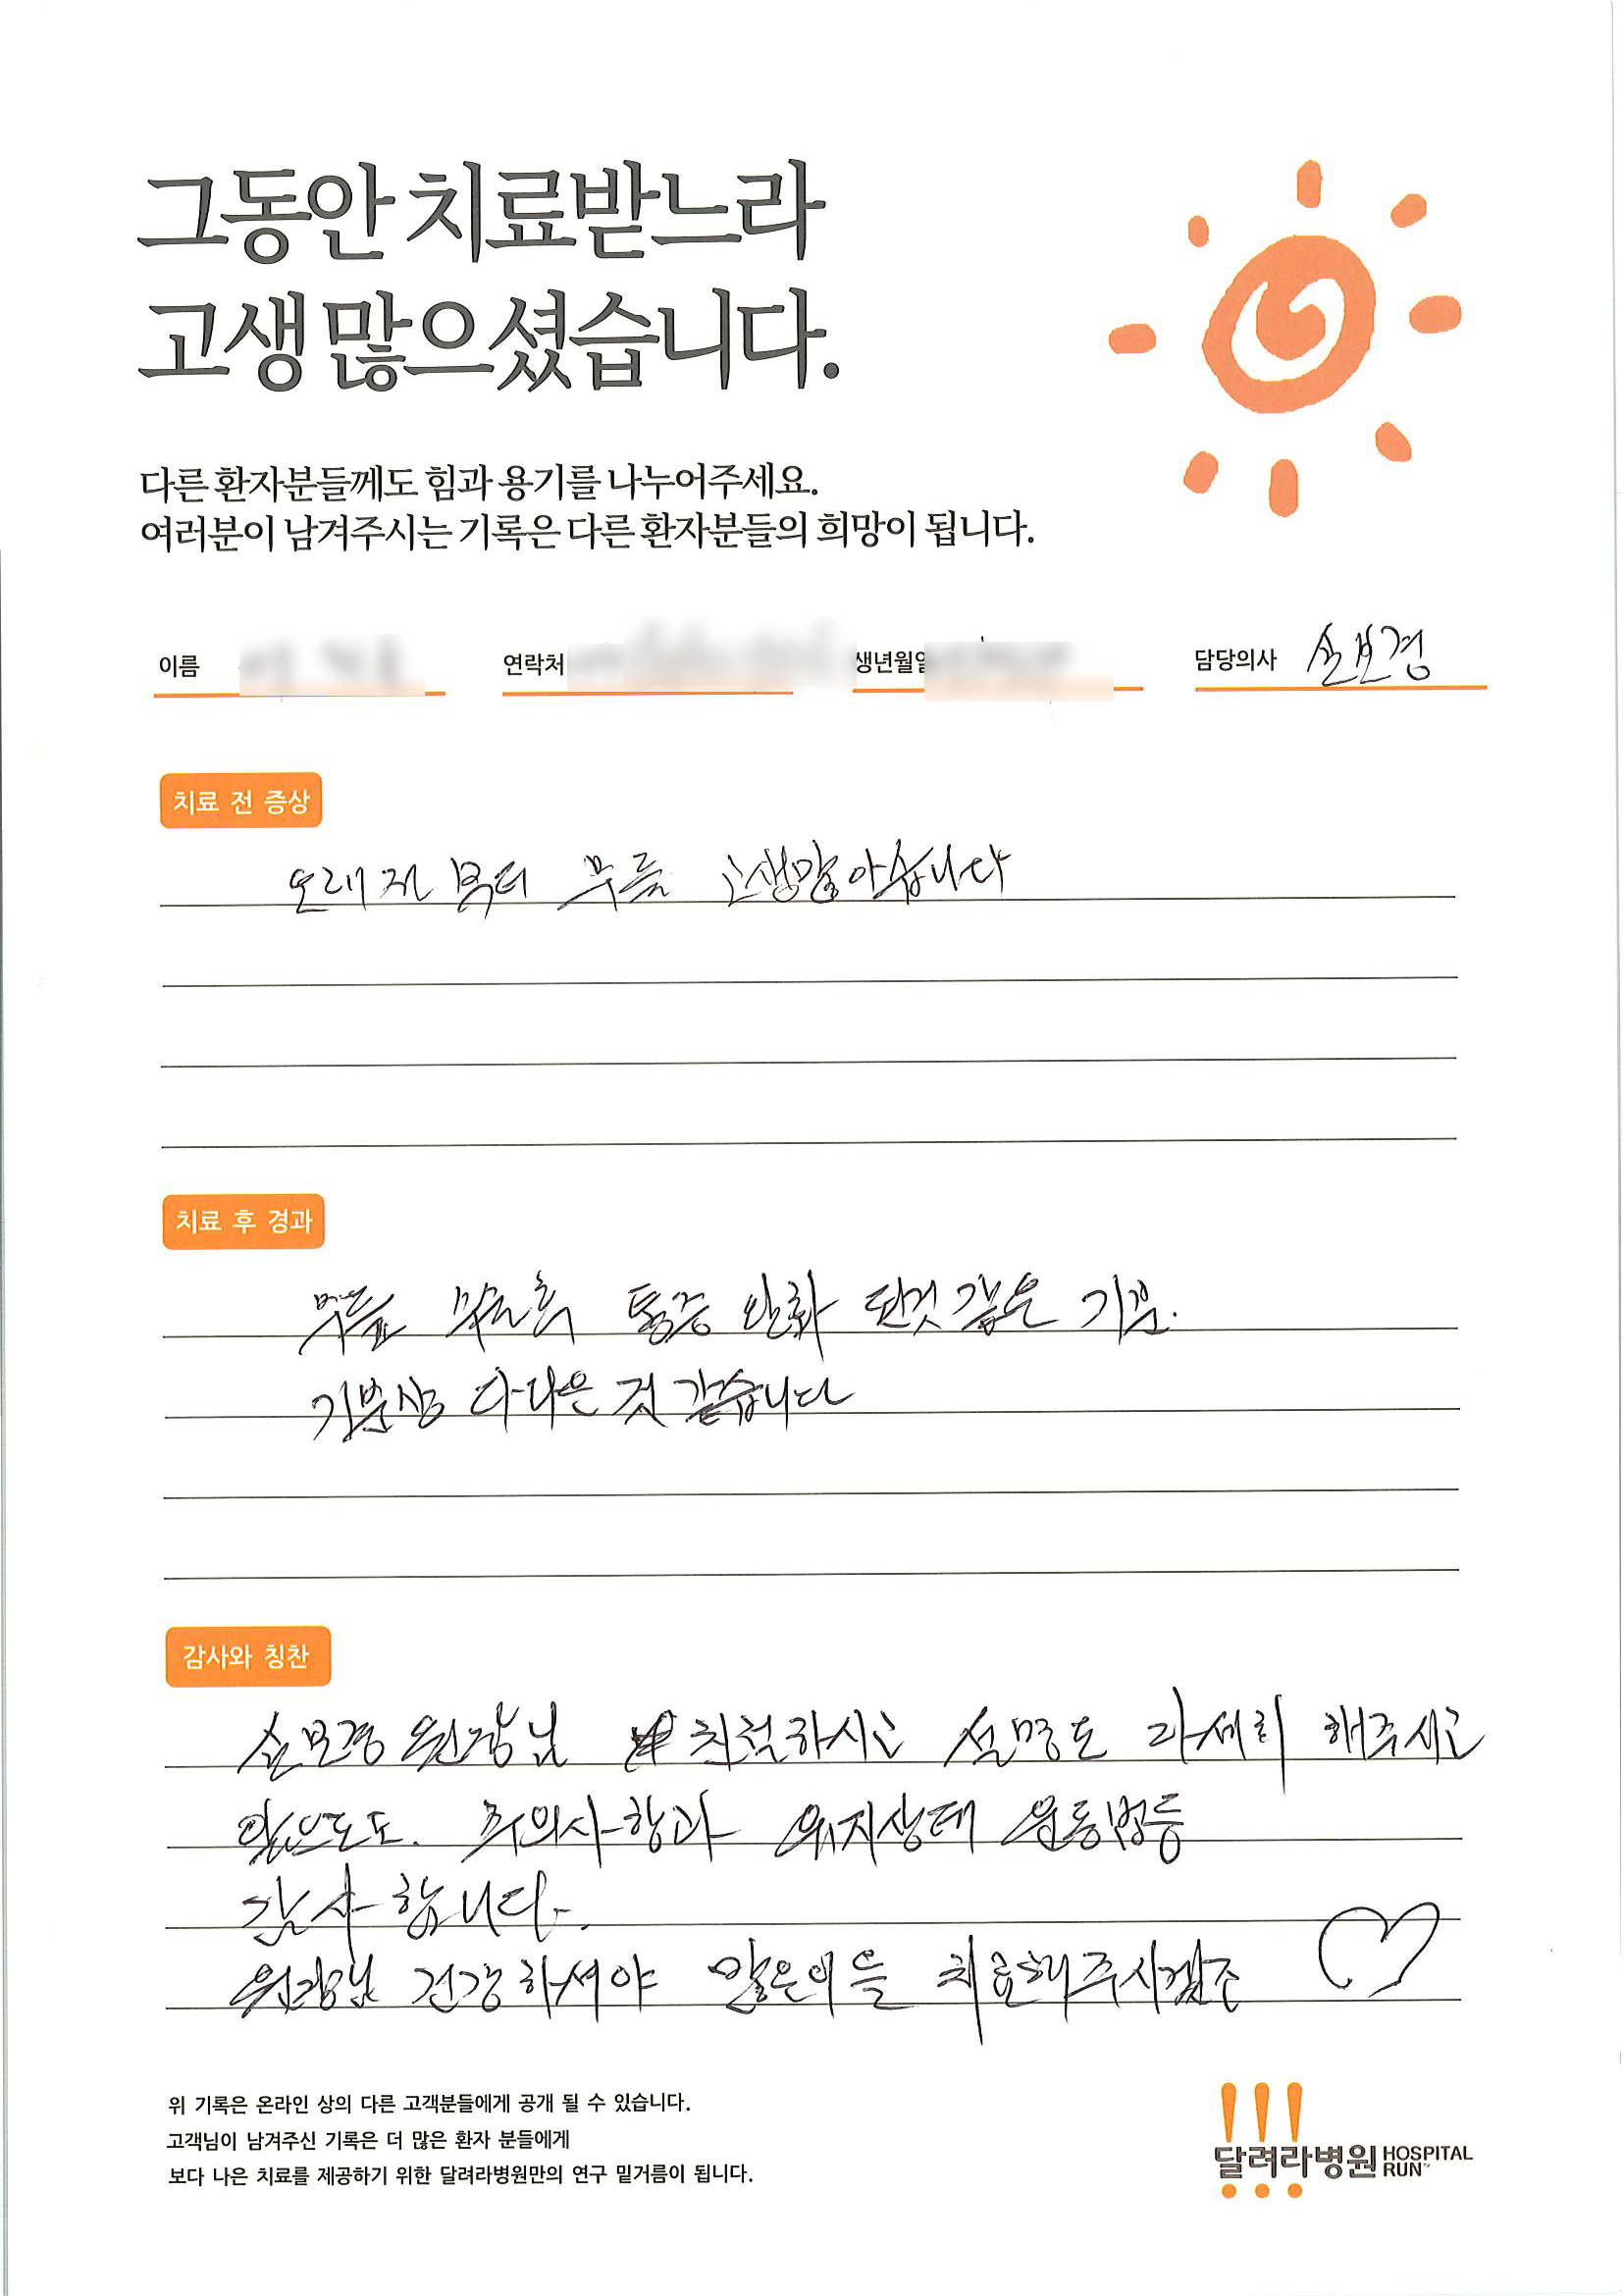 그동안 치료받느라
고생 많으셨습니다.
다른 환자분들께도 힘과 용기를 나누어주세요.
여러분이 남겨주시는 기록은 다른 환자분들의 희망이 됩니다.
이름 연락처 생년월일 담당의사 손보경
치료 전 증상
오래전부터 무릎 고생많아습니다
치료 후 경과
무릎 통증 완화 된것 같은 기분.
기분상 다 나은 것 같습니다
감사와 칭찬
손보경 원장님 친절하시고 설명도 자세히 해주시고
앞으로도. 주의사항과 유지상태 운동법등
감사합니다.
원장님 건강하셔야 많은이들 치료해주시겠죠
위 기록은 온라인 상의 다른 고객분들에게 공개 될 수 있습니다.
고객님이 남겨주신 기록은 더 많은 환자 분들에게
보다 나은 치료를 제공하기 위한 달려라병원만의 연구 밑거름이 됩니다.
달려라병원 HOSPITAL
RUN